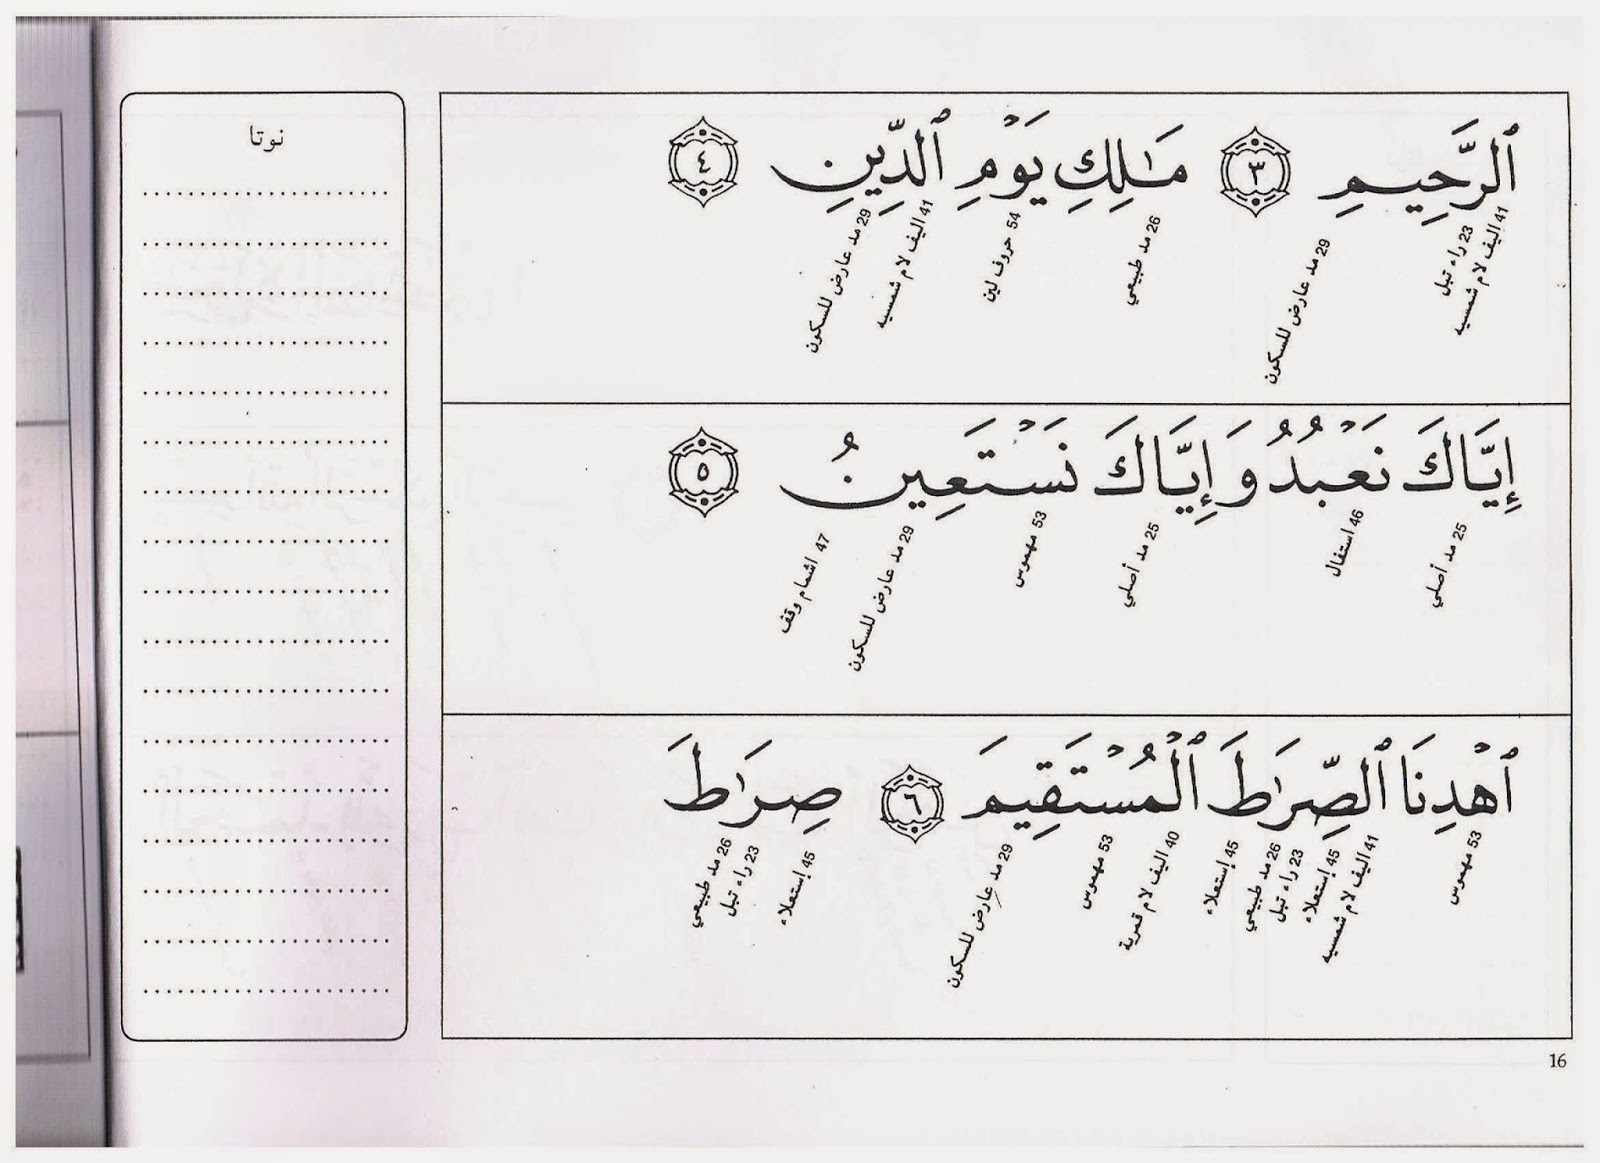 ٱلرَّحِيمِ ٣ مَٰلِكِ يَوْمِ ٱلدِّينِ ٤
41 اليف لام شمسيه
23 راء تبل
29 مد عارض للسكون
26 مد طبيعي
54 حروف لين
41 اليف لام شمسيه
29 مد عارض للسكون
إِيَّاكَ نَعْبُدُ وَإِيَّاكَ نَسْتَعِينُ ٥
25 مد أصلي
46 استفال
25 مد أصلي
53 مهموس
29 مد عارض للسكون
47 اشمام وقف
ٱهْدِنَا ٱلصِّرَٰطَ ٱلْمُسْتَقِيمَ ٦ صِرَٰطَ
53 مهموس
41 اليف لام شمسيه
45 إستعلاء
23 راء تبل
26 مد طبيعي
45 إستعلاء
40 اليف لام قمرية
53 مهموس
29 مد عارض للسكون
45 إستعلاء
23 راء تبل
26 مد طبيعي
نوتا
16